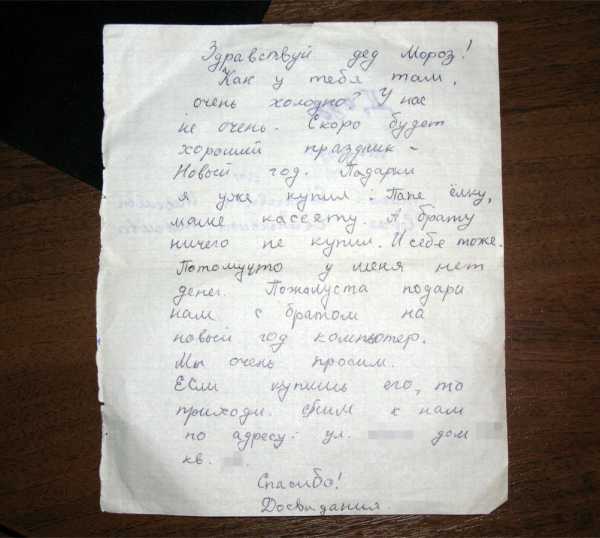 Здравствуй дед Мороз!
Как у тебя там,
очень холодно? У нас
не очень. Скоро будет
хороший праздник -
Новый год. Подарки
я уже купил: Папе ёлку,
маме кассету. А брату
ничего не купил. И себе тоже.
Потомучто у меня нет
денег. Пожалуста подари
нам с братом на
новый год компьютер.
Мы очень просим.
Если купишь его, то
приходи с ним к нам
по адресу: ул. дом
кв.
Спасибо!
Досвидания.